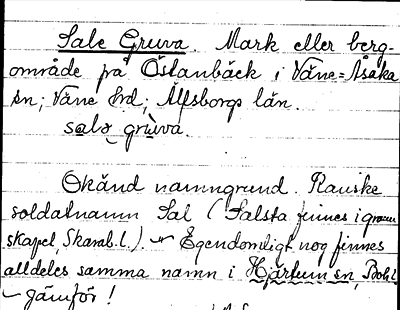 Sale Gruva. Mark eller berg-
område på Östanbäck i Väne=Åsaka
sn; Väne hd; Älfsborgs län.
salə grùva.
Okänd namngrund. Kanske
soldatnamn Sal (Salsta finnes i grann
skapet, Skarab.l.). Egendomligt nog finnes
alldeles samma namn i Hjärtum sn, Boh.l.
– jämför!